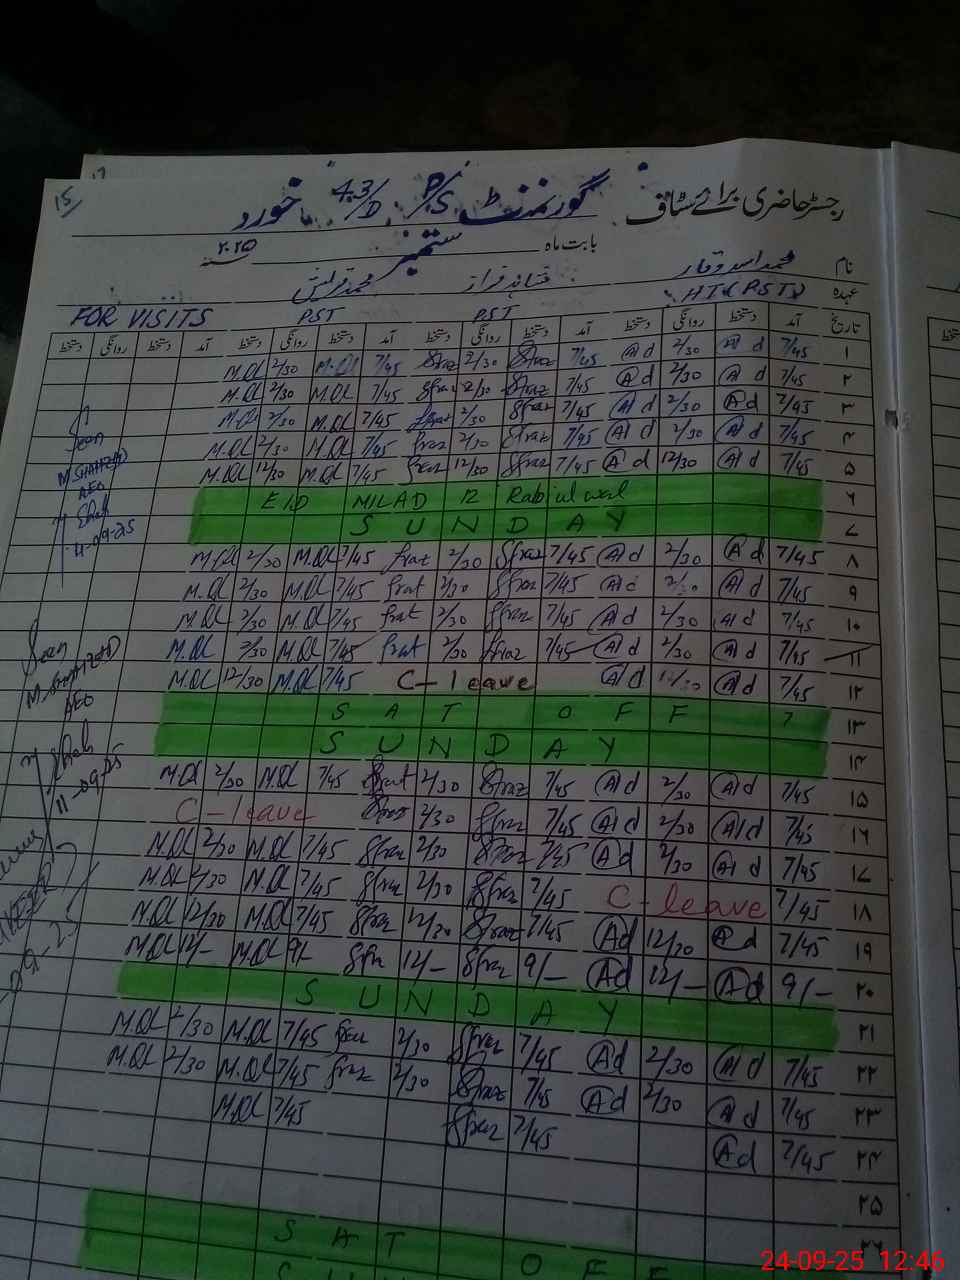 15
رجسٹر حاضری برائے سٹاف گورنمنٹ P/S 43/D خورد
بابت ماہ ستمبر سنہ ۲۰۲۵
نام محمد اسد وقار
عہدہ HT(PST) PST PST FOR VISITS
تاریخ آمد دستخط روانگی دستخط آمد دستخط روانگی دستخط آمد دستخط روانگی دستخط آمد دستخط روانگی دستخط
M.Ql 2/30 M.Ql 7/45 Sfraz 2/30 Sfraz 7/45 Ad 2/30 Ad 7/45 ۱
M.Ql 2/30 M.Ql 7/45 Sfraz 2/30 Sfraz 7/45 Ad 2/30 Ad 7/45 ۲
M.Ql 2/30 M.Ql 7/45 Sfraz 2/30 Sfraz 7/45 Ad 2/30 Ad 7/45 ۳
M.Ql 2/30 M.Ql 7/45 fraz 2/30 Sfraz 7/45 Ad 2/30 Ad 7/45 ۴
M.Ql 12/30 M.Ql 7/45 fraz 12/30 Sfraz 7/45 Ad 12/30 Ad 7/45 ۵
EID MILAD 12 Rabiulwal ۶
SUNDAY ۷
M.Ql 2/30 M.Ql 7/45 fraz 2/30 Sfraz 7/45 Ad 2/30 Ad 7/45 ۸
M.Ql 2/30 M.Ql 7/45 frat 2/30 Sfraz 7/45 Ad 2/30 Ad 7/45 ۹
M.Ql 2/30 M.Ql 7/45 frat 2/30 Sfraz 7/45 Ad 2/30 Ad 7/45 ۱۰
M.Ql 2/30 M.Ql 7/45 frat 2/30 Sfraz 7/45 Ad 2/30 Ad 7/45 ۱۱
M.Ql 12/30 M.Ql 7/45 C-leave Ad 12/30 Ad 7/45 ۱۲
SAT OFF ۱۳
SUNDAY ۱۴
M.Ql 2/30 M.Ql 7/45 Sfrat 2/30 Sfraz 7/45 Ad 2/30 Ad 7/45 ۱۵
C-leave Sfraz 2/30 Sfraz 7/45 Ad 2/30 Ad 7/45 ۱۶
M.Ql 2/30 M.Ql 7/45 Sfraz 2/30 Sfraz 7/45 Ad 2/30 Ad 7/45 ۱۷
M.Ql 2/30 M.Ql 7/45 Sfraz 2/30 Sfraz 7/45 C-leave 7/45 ۱۸
M.Ql 12/30 M.Ql 7/45 Sfraz 12/30 Sfraz 7/45 Ad 12/30 Ad 7/45 ۱۹
M.Ql 12/- M.Ql 9/- Sfraz 12/- Sfraz 9/- Ad 12/- Ad 9/- ۲۰
SUNDAY ۲۱
M.Ql 2/30 M.Ql 7/45 fraz 2/30 Sfraz 7/45 Ad 2/30 Ad 7/45 ۲۲
M.Ql 2/30 M.Ql 7/45 fraz 2/30 Sfraz 7/45 Ad 2/30 Ad 7/45 ۲۳
M.Ql 7/45 Sfraz 7/45 Ad 7/45 ۲۴
۲۵
SAT OFF
Seen
M.SHAHZAD
AEO
11-09-25
Seen
M.SHAHZAD
AEO
11-09-25
24-09-25 12:46